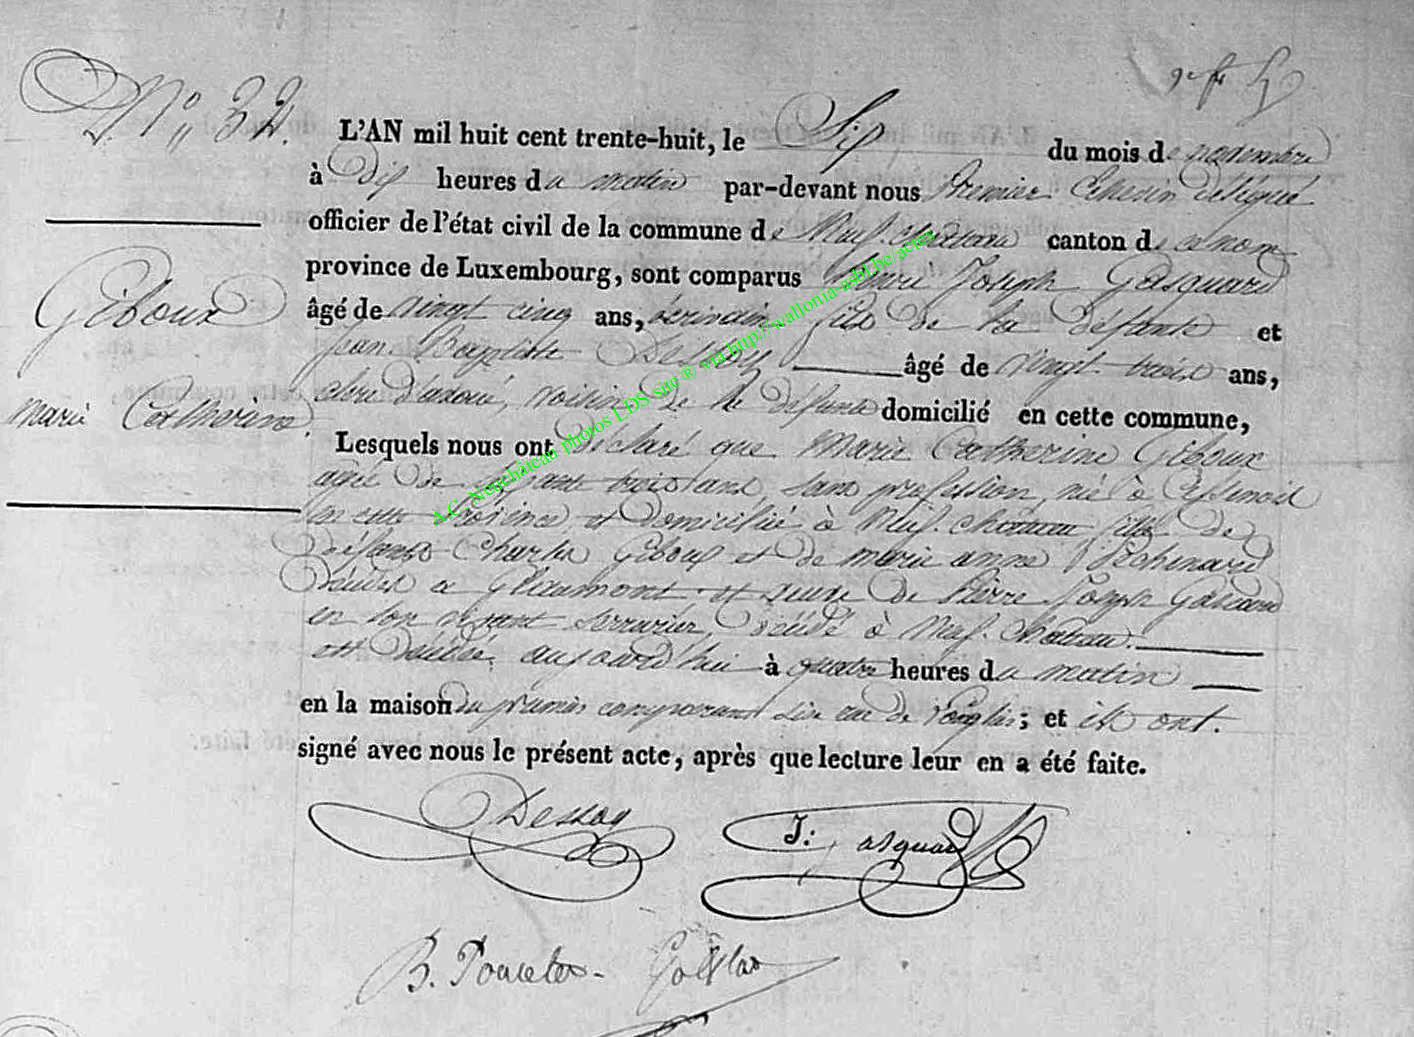 N° 32.
L'AN mil huit cent trente-huit, le Six du mois de novembre
à Dix heures du matin par-devant nous Premier Echevin délégué
officier de l'état civil de la commune de Neufchateau canton de
province de Luxembourg, sont comparus Joseph Gasquard
âgé de vingt cinq ans, fils de la défunte et
jean Baptiste Dessoy âgé de vingt trois ans,
clerc d'avoué, voisin de la défunte domicilié en cette commune,
Giboux
marie Catherine
Lesquels nous ont déclaré que Marie Catherine Giboux
agée de ans, sans profession, née à
en cette province et domiciliée à Neufchateau, fille de
défunts Charles Giboux et de marie anne
décédés a et veuve de Pierre Joseph
en son vivant serrurier, décédé à Neufchateau.
est décédée aujourd'hui à quatre heures du matin
en la maison du premier comparant rue de ; et ils ont
signé avec nous le présent acte, après que lecture leur en a été faite.
Dessoy
J: asquard
B. Poncelet
A.C. Neufchâteau photos LDS site ® via http://wallonia-asbl.be/actes